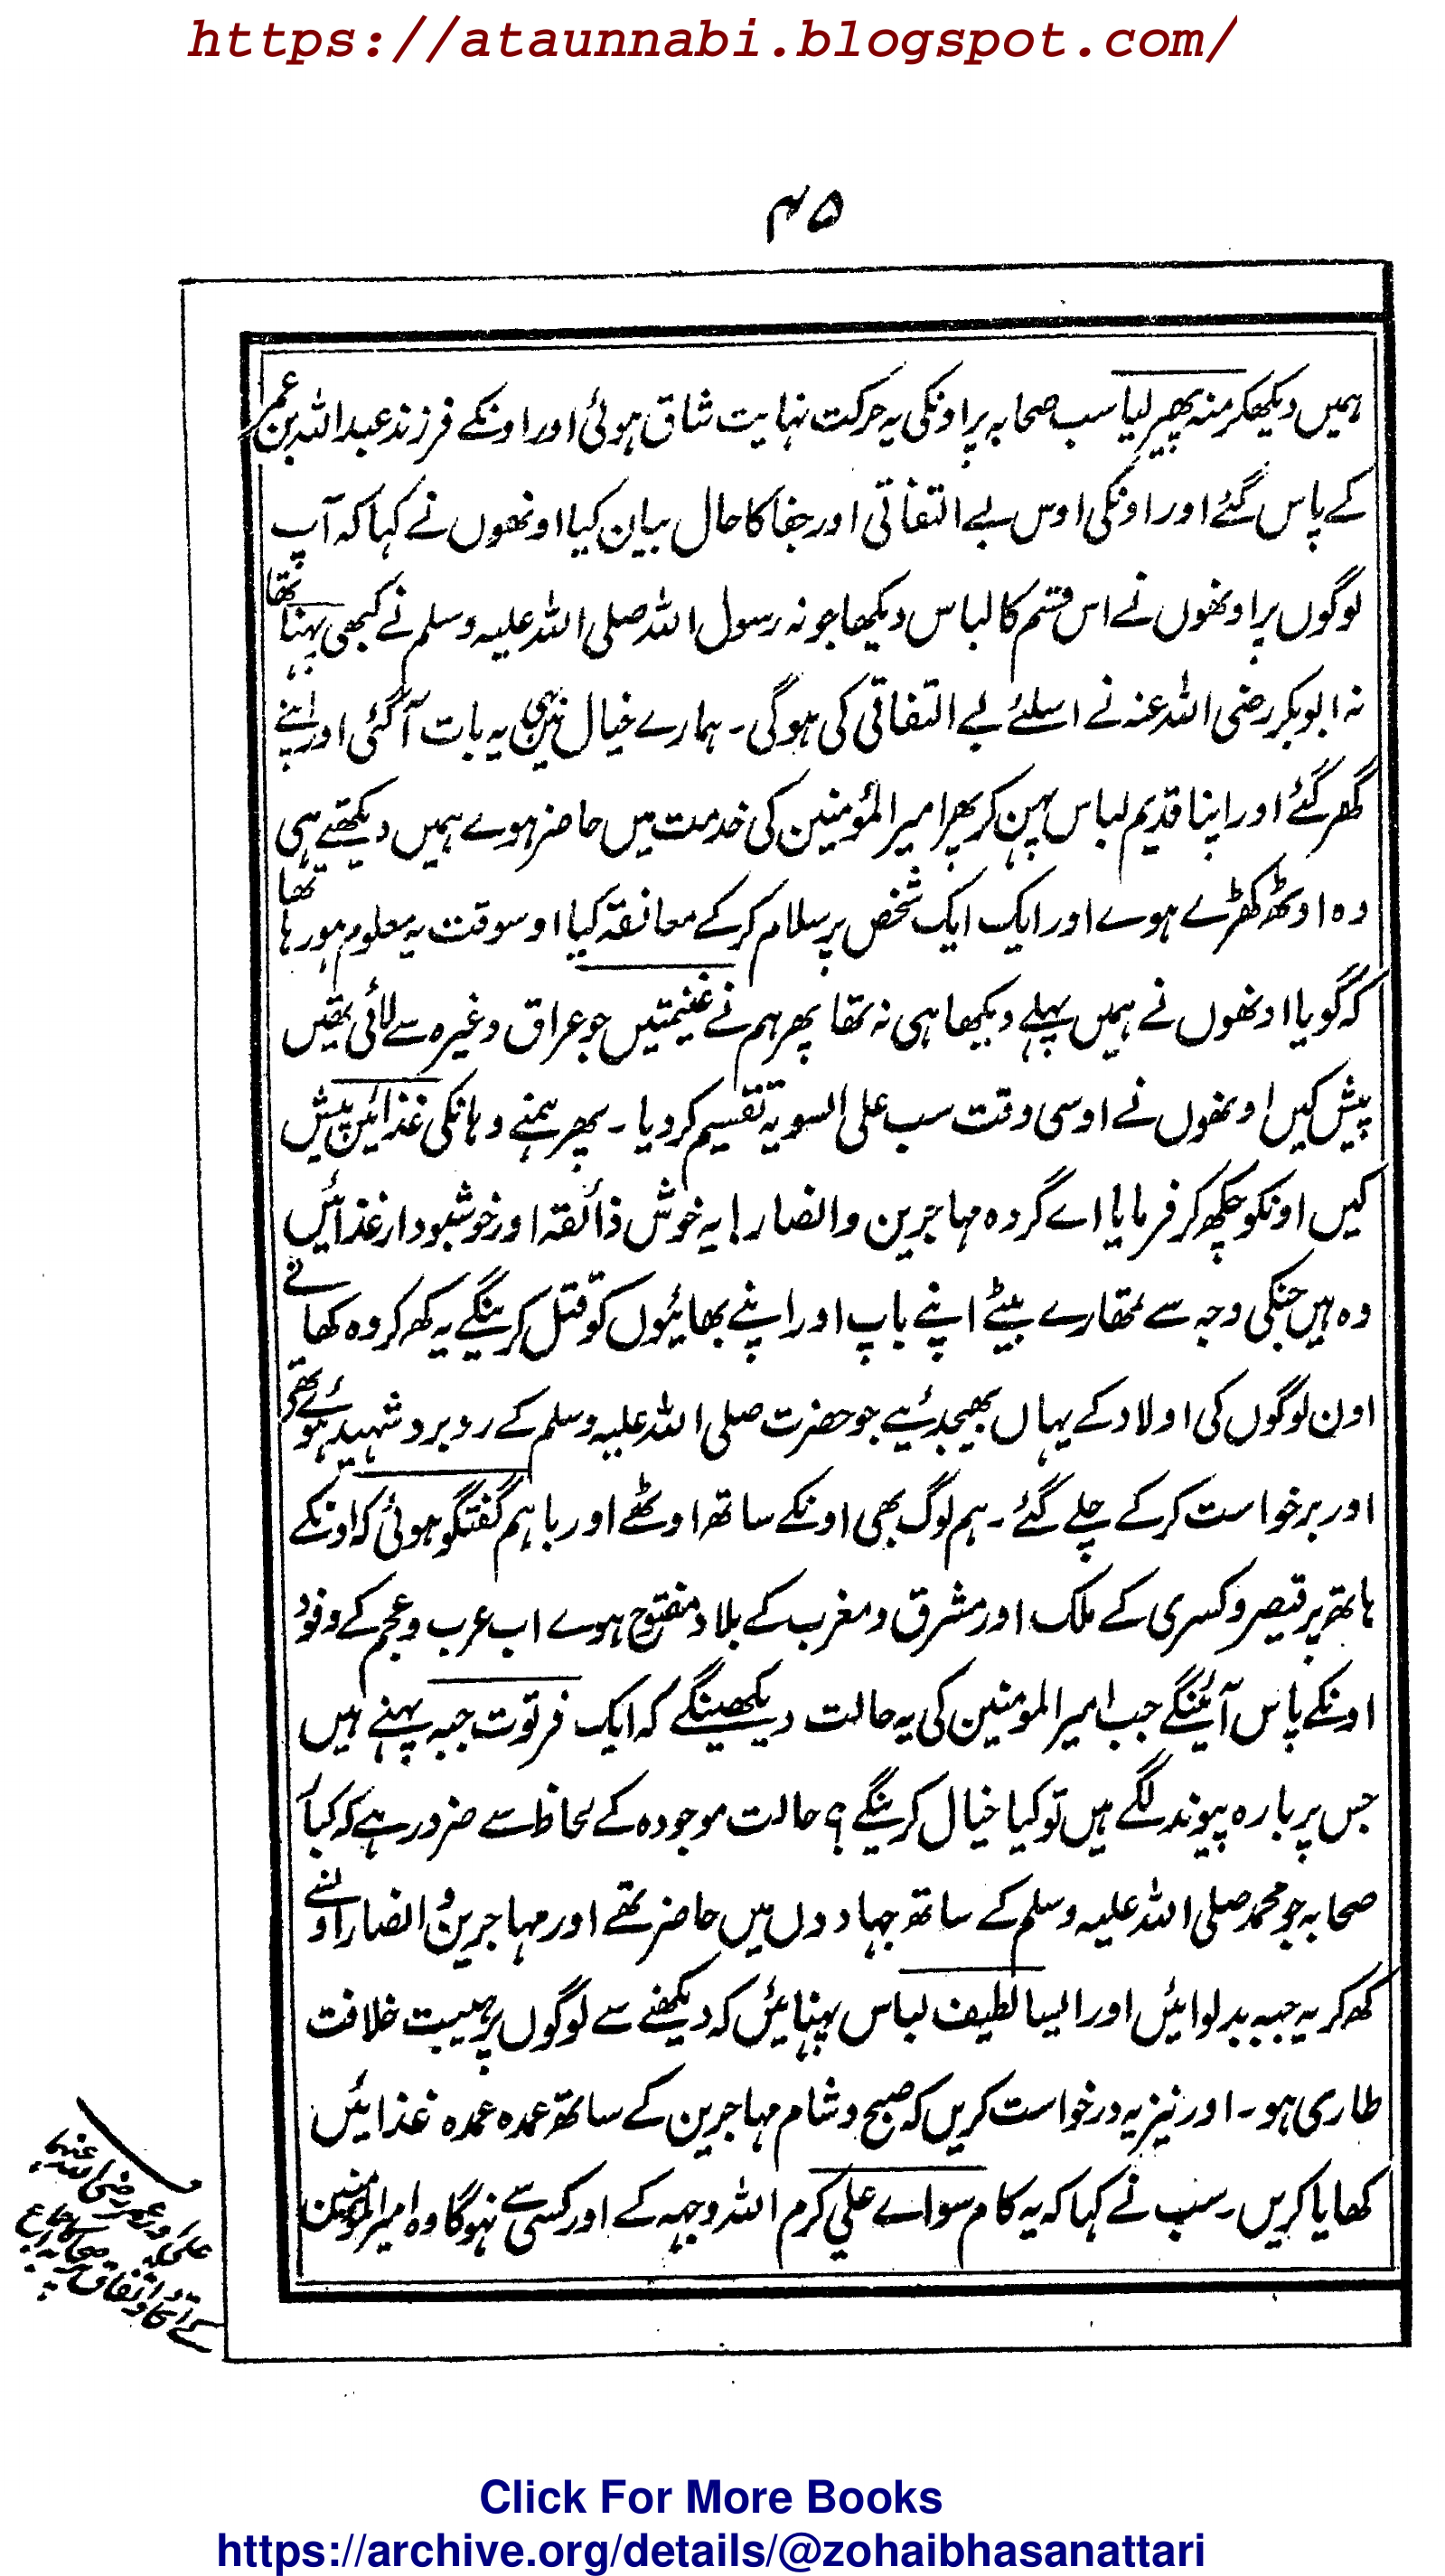 https://ataunnabi.blogspot.com/
۴۵
ہمیں دیکھکر منہ پھیر لیا سب صحابہ پر اونکی یہ حرکت نہایت شاق ہوئی اور اونکے فرزند عبداللہ بن عمر
کے پاس گئے اور اونکی اوس بے التفاتی اور جفا کا حال بیان کیا اونھوں نے کہا کہ آپ
لوگوں پر اونھوں نے اس قسم کا لباس دیکھا جو نہ رسول اللہ صلی اللہ علیہ وسلم نے کبھی پہنا تھا
نہ ابوبکر رضی اللہ عنہ نے اسلئے بے التفاتی کی ہوگی۔ ہمارے خیال میں بھی یہ بات آگئی اور اپنے
گھر گئے اور اپنا قدیم لباس پہن کر پھر امیر المؤمنین کی خدمت میں حاضر ہوے ہمیں دیکھتے ہی
وہ اوٹھ کھڑے ہوے اور ایک ایک شخص پر سلام کر کے معانقہ کیا اوسوقت یہ معلوم ہو رہا تھا
کہ گویا اونھوں نے ہمیں پہلے دیکھا ہی نہ تھا پھر ہم نے غنیمتیں جو عراق وغیرہ سے لائی تھیں
پیش کیں اونھوں نے اوسی وقت سب علی السویہ تقسیم کر دیا۔ پھر ہمنے وہانکی غذائیں پیش
کیں اونکو چکھ کر فرمایا اے گروہ مہاجرین و انصار! یہ خوش ذائقہ اور خوشبودار غذائیں
وہ ہیں جنکی وجہ سے تمھارے بیٹے اپنے باپ اور اپنے بھائیوں کو قتل کرینگے یہ کھر کر وہ کھانے
اون لوگوں کی اولاد کے یہاں بھیجدئیے جو حضرت صلی اللہ علیہ وسلم کے روبرو شہید ہوئے تھے
اور برخواست کر کے چلے گئے۔ ہم لوگ بھی اونکے ساتھ اوٹھے اور باہم گفتگو ہوئی کہ اونکے
ہاتھ پر قیصر و کسری کے ملک اور مشرق و مغرب کے بلاد مفتوح ہوے اب عرب و عجم کے وفود
اونکے پاس آئینگے جب امیر المومنین کی یہ حالت دیکھینگے کہ ایک فرتوت جبہ پہنے ہیں
جس پر بارہ پیوند لگے ہیں تو کیا خیال کرینگے؟ حالت موجودہ کے لحاظ سے ضرور ہے کہ کبار
صحابہ جو محمد صلی اللہ علیہ وسلم کے ساتھ جہادوں میں حاضر تھے اور مہاجرین و انصار اونسے
کھ کر یہ جبہ بدلوائیں اور ایسا لطیف لباس پہنائیں کہ دیکھنے سے لوگوں پر ہیبت خلافت
طاری ہو۔ اور نیز یہ درخواست کریں کہ صبح و شام مہاجرین کے ساتھ عمدہ عمدہ غذائیں
کھایا کریں۔ سب نے کہا کہ یہ کام سواے علي کرم اللہ وجہہ کے اور کسی سے نہوگا وہ امیر المومنین
علی و عمر رضی اللہ عنہما
صحابہ کا اجماع
اتفاق
Click For More Books
https://archive.org/details/@zohaibhasanattari